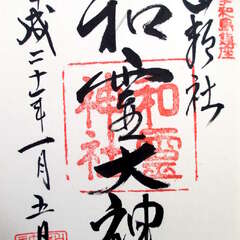 宇和島鎮座
和霊大神
和霊
神社
平成二十一年一月五日